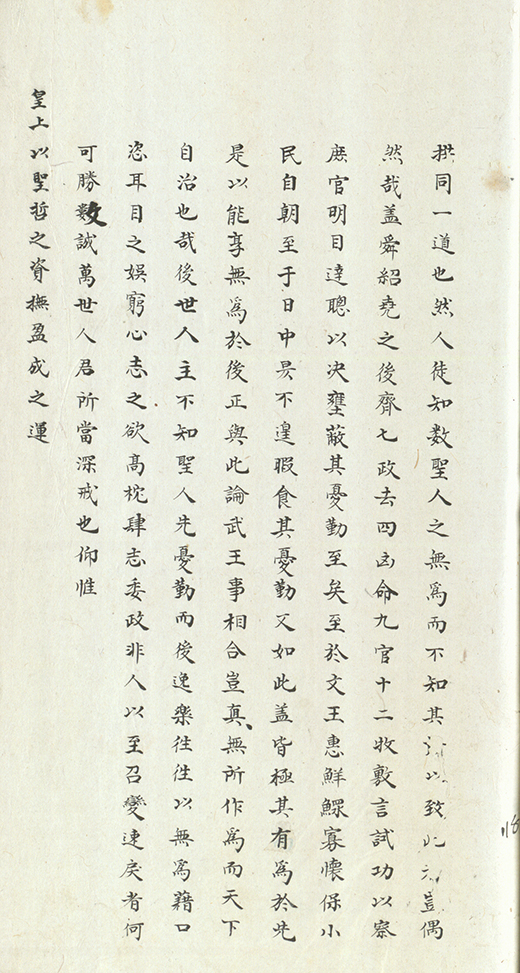 拱同一道也然人徒知数聖人之無爲而不知其所以致此亦豈偶
然哉盖舜紹堯之後齊七政去四凶命九官十二牧敷言試功以察
庶官明目達聰以决壅蔽其憂勤至矣至於文王惠鮮鰥寡懷保小
民自朝至于日中昃不遑暇食其憂勤又如此盖皆極其有爲於先
是以能享無爲於後正與此論武王事相合豈真無所作爲而天下
自治也哉後世人主不知聖人先憂勤而後逸樂徃徃以無爲藉口
恣耳目之娯窮心志之欲髙枕肆志委政非人以至召變速戾者何
可勝数誠萬世人君所當深戒也仰惟
皇上以聖哲之資撫盈成之運